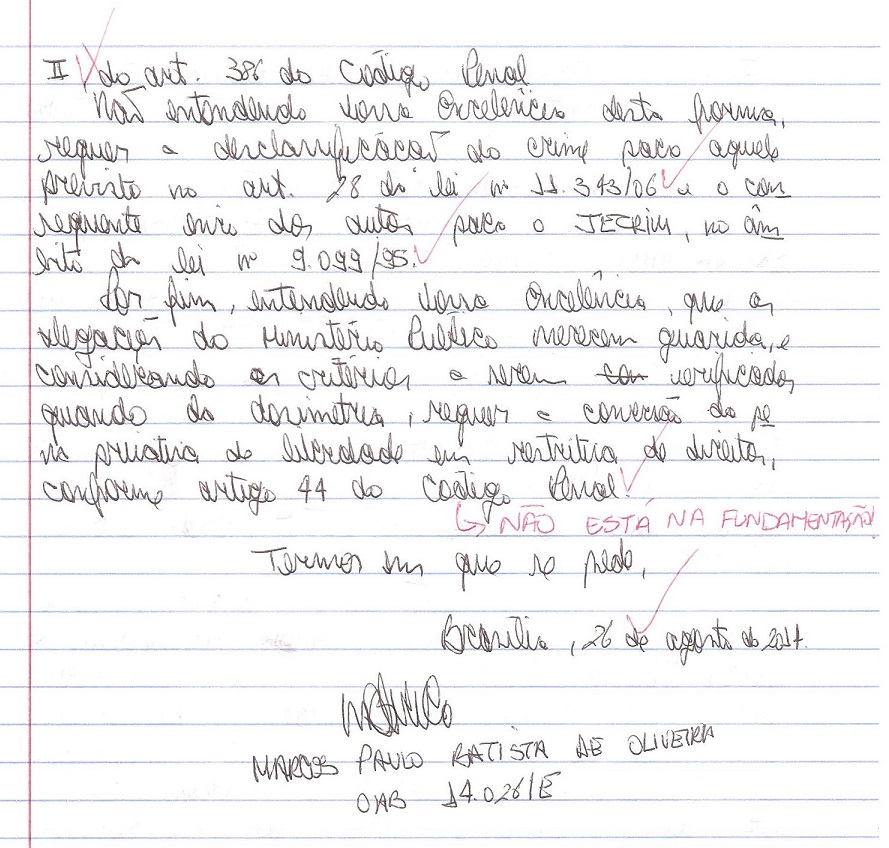 II do art. 386 do Código Penal
Não entendendo Vossa Excelência desta forma,
requer a desclassificação do crime para aquele
previsto no art. 28 da lei nº 11.343/06 e o con
sequente envio dos autos para o JECRIM, no âm
bito da lei nº 9.099/95.
Por fim, entendendo Vossa Excelência, que as
alegações do Ministério Público merecem guarida, e
considerando os critérios a serem verificados
quando da dosimetria, requer a conversão da pe
na privativa de liberdade em restritiva de direitos,
conforme artigo 44 do Código Penal.
↳ NÃO ESTÁ NA FUNDAMENTAÇÃO!
Termos em que se pede,
Brasília, 26 de agosto de 2017.
MARCOS PAULO BATISTA DE OLIVEIRA
OAB 14.026/E